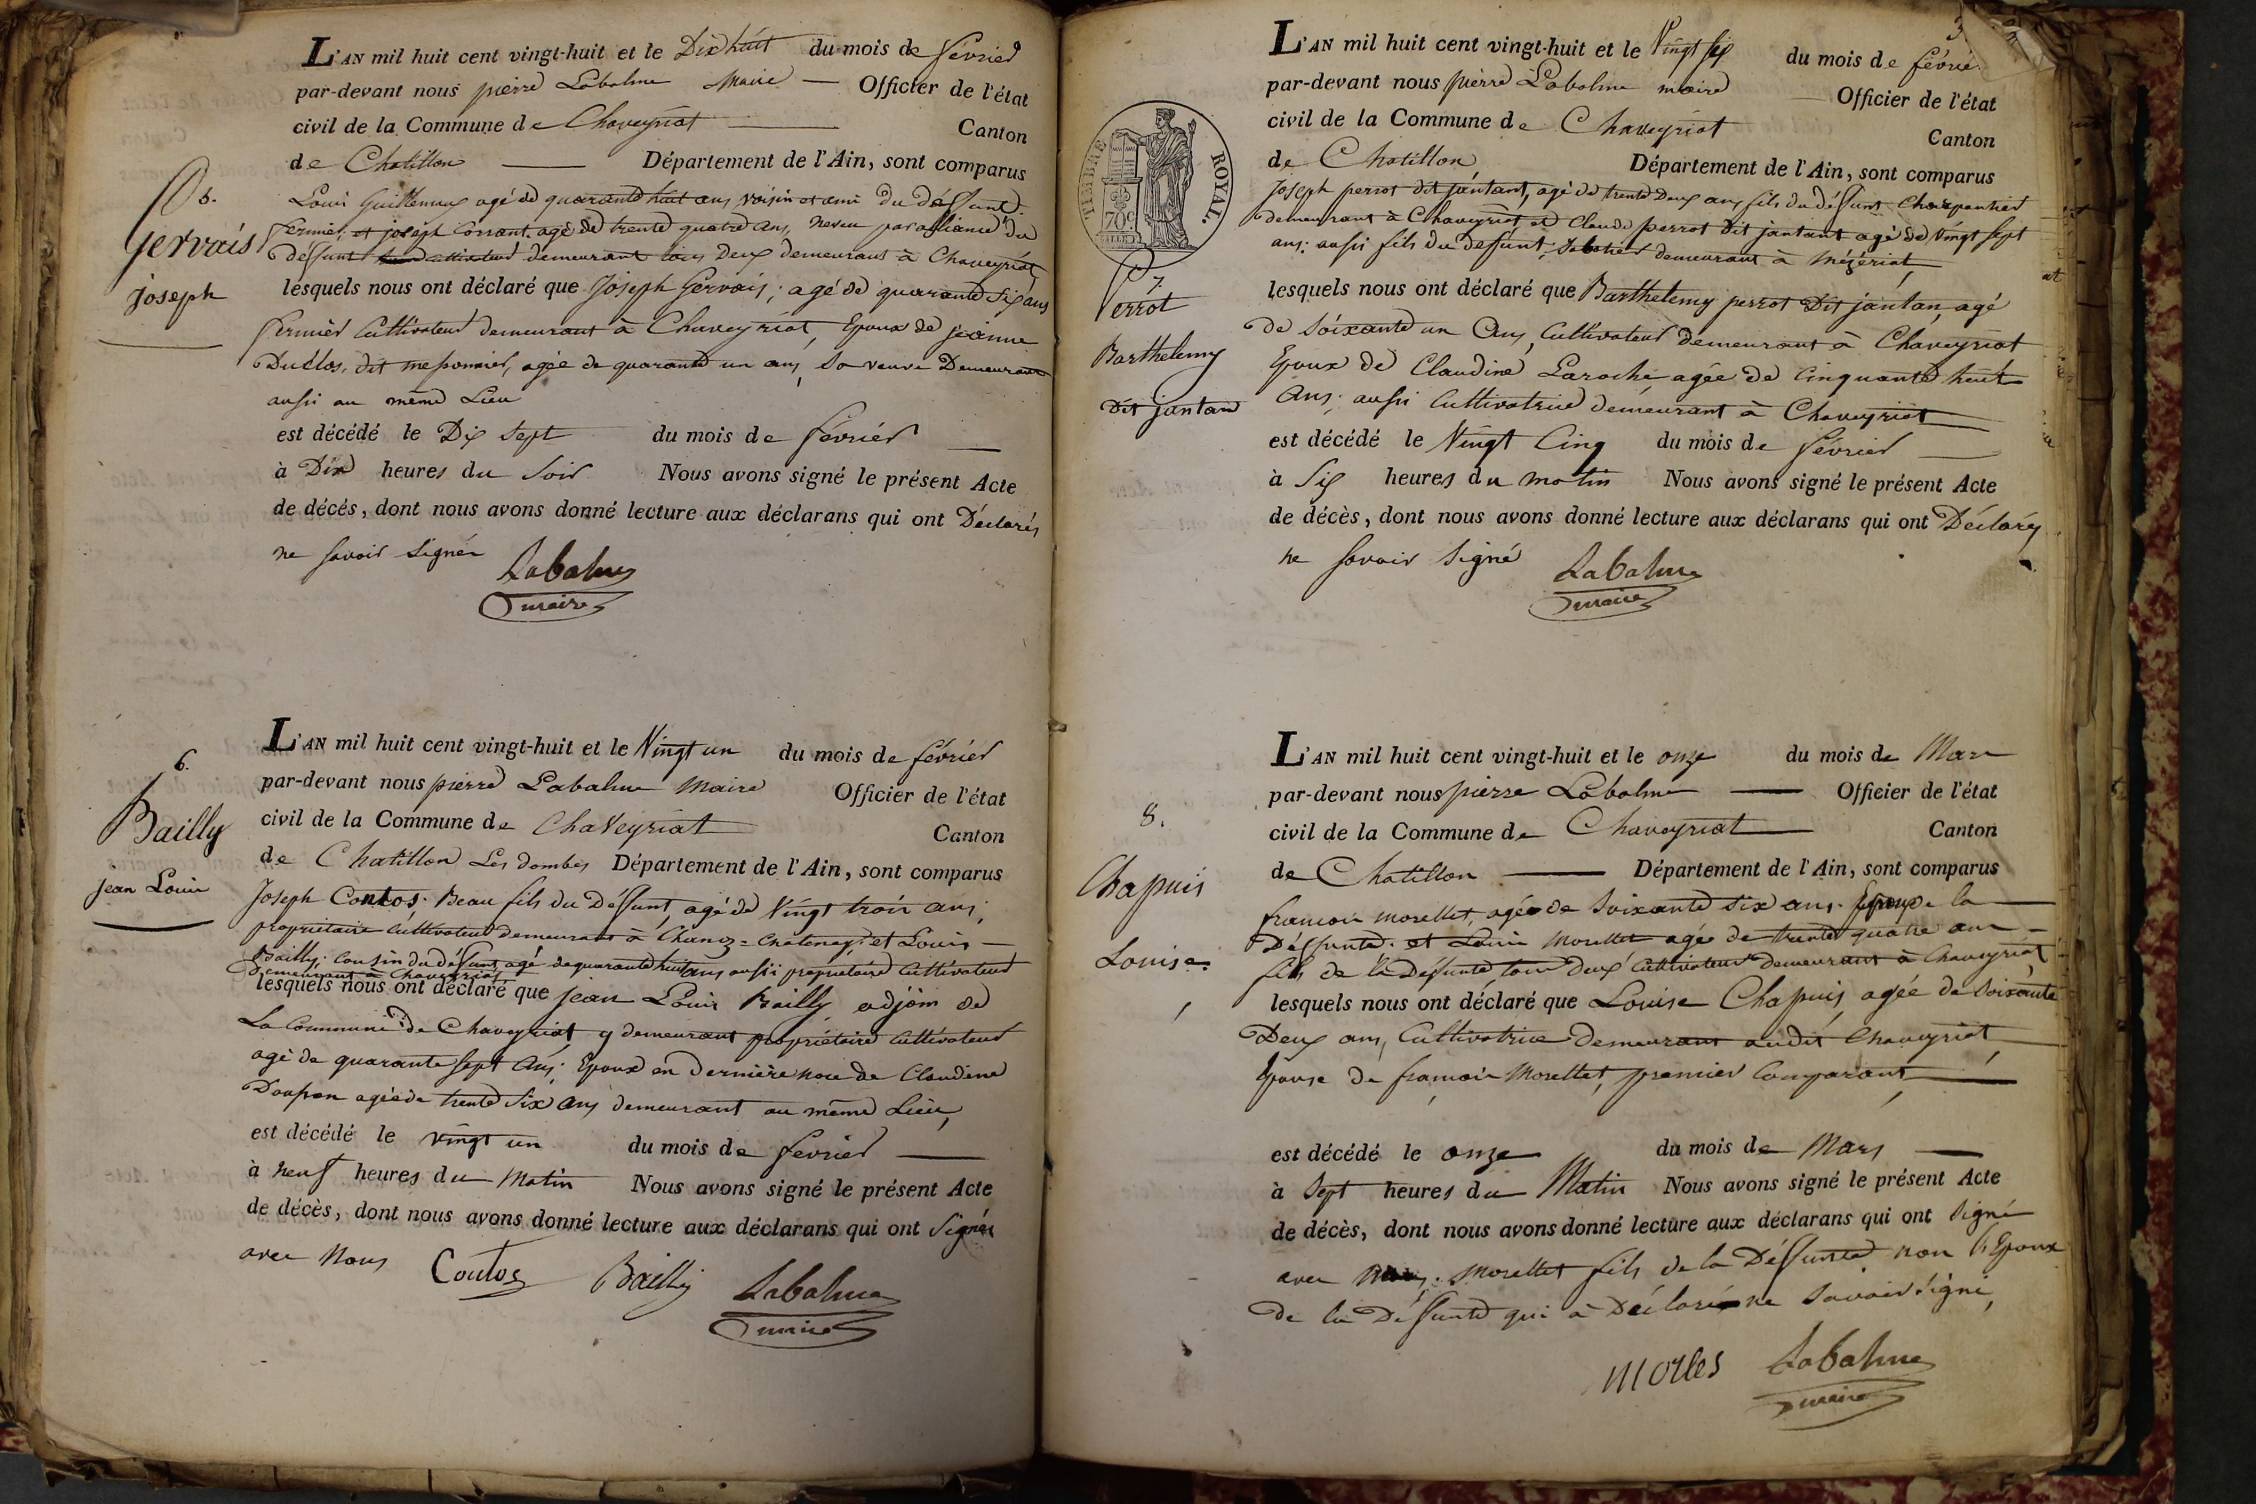 L'AN mil huit cent vingt-huit et le Dix huit du mois de février
par-devant nous pierre Labalme Maire — Officier de l'état
civil de la Commune de Chaveyriat — Canton
de Chatillon — Département de l'Ain, sont comparus
5.
Gervais
joseph
Louis Guillemux agé de quarante huit ans, voisin et ami du déffunt.
fermier, et joseph Corrant agé de trente quatre ans, neveu par alliance du
déffunt demeurant tous Deux demeurans à Chaveyriat
lesquels nous ont déclaré que Joseph Gervais, agé de quarante six ans
fermier Cultivateur demeurant à Chaveyriat, Epoux de jeanne
Duclos, dit mesponnier, agée de quarante un ans, sa veuve Demeurant
aussi au même Lieu
est décédé le Dix sept du mois de février —
à Dix heures du Soir Nous avons signé le présent Acte
de décés, dont nous avons donné lecture aux déclarans qui ont Déclarés
ne savoir signér
Labalme
maire
6.
Bailly
jean Louis
L'AN mil huit cent vingt-huit et le Vingt un du mois de février
par-devant nous pierre Labalme Maire Officier de l'état
civil de la Commune de Chaveyriat Canton
de Chatillon Les dombes Département de l'Ain, sont comparus
Joseph Contos. Beau fils du Déffunt, agé de Vingt trois ans,
propriétaire Cultivateur demeurant à Chanoz=Chatenay. et Louis —
Bailly. Cousin du déffunt agé de quarante huit ans aussi propriétaire Cultivateur
demeurant à Chaveyriat
lesquels nous ont déclaré que jean Louis Bailly adjoin de
La Commune de Chaveyriat y demeurant propriétaire Cultivateur
agé de quarante sept Ans; Epoux en Dernière noce de Claudine
Doupon agée de trente Six Ans demeurant au même Lieu,
est décédé le vingt un du mois de fevrier —
à neuf heures du Matin Nous avons signé le présent Acte
de décès, dont nous avons donné lecture aux déclarans qui ont Signés
avec Nous Coutos Bailly Labalme
maire
3
L'AN mil huit cent vingt-huit et le Vingt six du mois de févrié
par-devant nous pierre Labalme maire — Officier de l'état
civil de la Commune de Chaveyriat Canton
de Chatillon Département de l'Ain, sont comparus
TIMBRE ROYAL.
70c.
7.
Perrot
Barthelemy
Dit jantan
Joseph perrot dit jantant, agé de trente Deux ans fils du déffunt Charpentier
demeurant à Chaveyriat, et Claude perrot dit jantant agé de Vingt sept
ans; aussi fils du deffunt, Sabotier demeurant à Mézériat,
lesquels nous ont déclaré que Barthelemy perrot Dit jantan, agé
de Soixante un Ans, Cultivateur demeurant à Chaveyriat
Epoux de Claudine Laroche agée de Cinquante huit
Ans; aussi Cultivatrice demeurant à Chaveyriat
est décédé le Vingt Cinq du mois de février —
à Six heures du matin Nous avons signé le présent Acte
de décès, dont nous avons donné lecture aux déclarans qui ont Déclarés
ne savoir Signé
Labalme
maire
8.
Chapuis
Louise.
L'AN mil huit cent vingt-huit et le onze du mois de Mars
par-devant nous pierre Labalme — Officier de l'état
civil de la Commune de Chaveyriat — Canton
de Chatillon — Département de l'Ain, sont comparus
francois morellet, agé de Soixante six ans. Epoux de la —
Déffunte. et Louis Morellet agé de trente quatre ans —
fils de la Déffunte tous deux Cultivateur demeurant à Chaveyriat
lesquels nous ont déclaré que Louise Chapuis, agée de Soixante
Deux ans, Cultivatrice demeurant audit Chaveyriat
Epouse de francois Morellet, premier Comparant —
est décédé le onze du mois de Mars —
à Sept heures du Matin Nous avons signé le présent Acte
de décès, dont nous avons donné lecture aux déclarans qui ont Signé
avec Nous. Morellet fils de la Déffunte non l'Epoux
de la Déffunte qui a Déclaré ne Savoir Signé,
Morles Labalme
maire